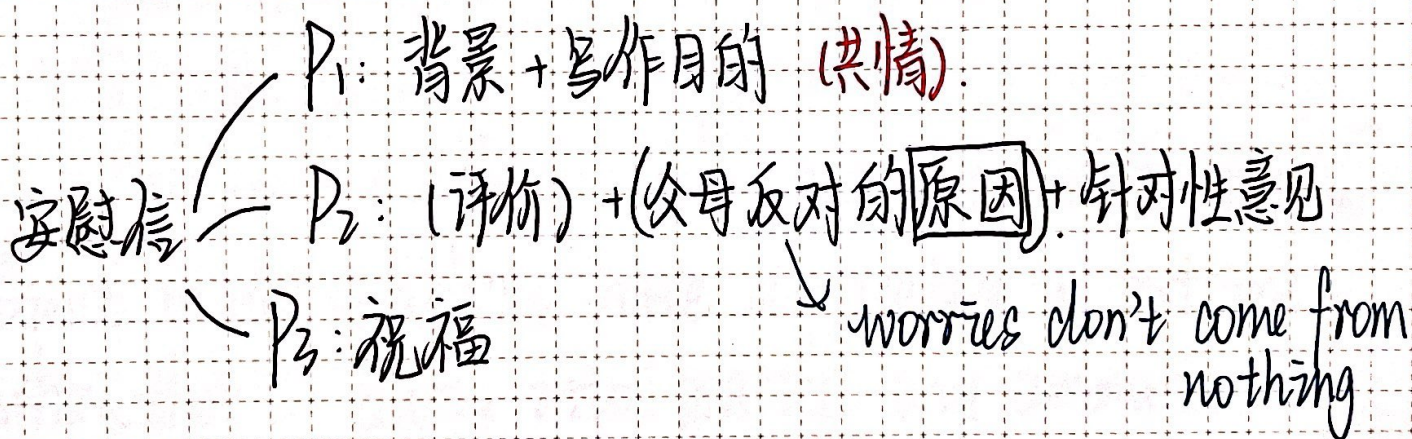 P1: 背景 + 写作目的 (共情).
安慰信
P2: (评价) + (父母反对的原因) + 针对性意见
worries don't come from
nothing
P3: 祝福